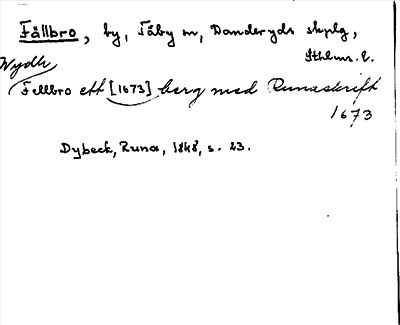 Fällbro, by, Täby sn, Danderyds skplg,
Sthlms. l.
Wydh
Fellbro ett [1673] berg med Runaskrift
1673
Dybeck, Runa, 1848, s. 23.